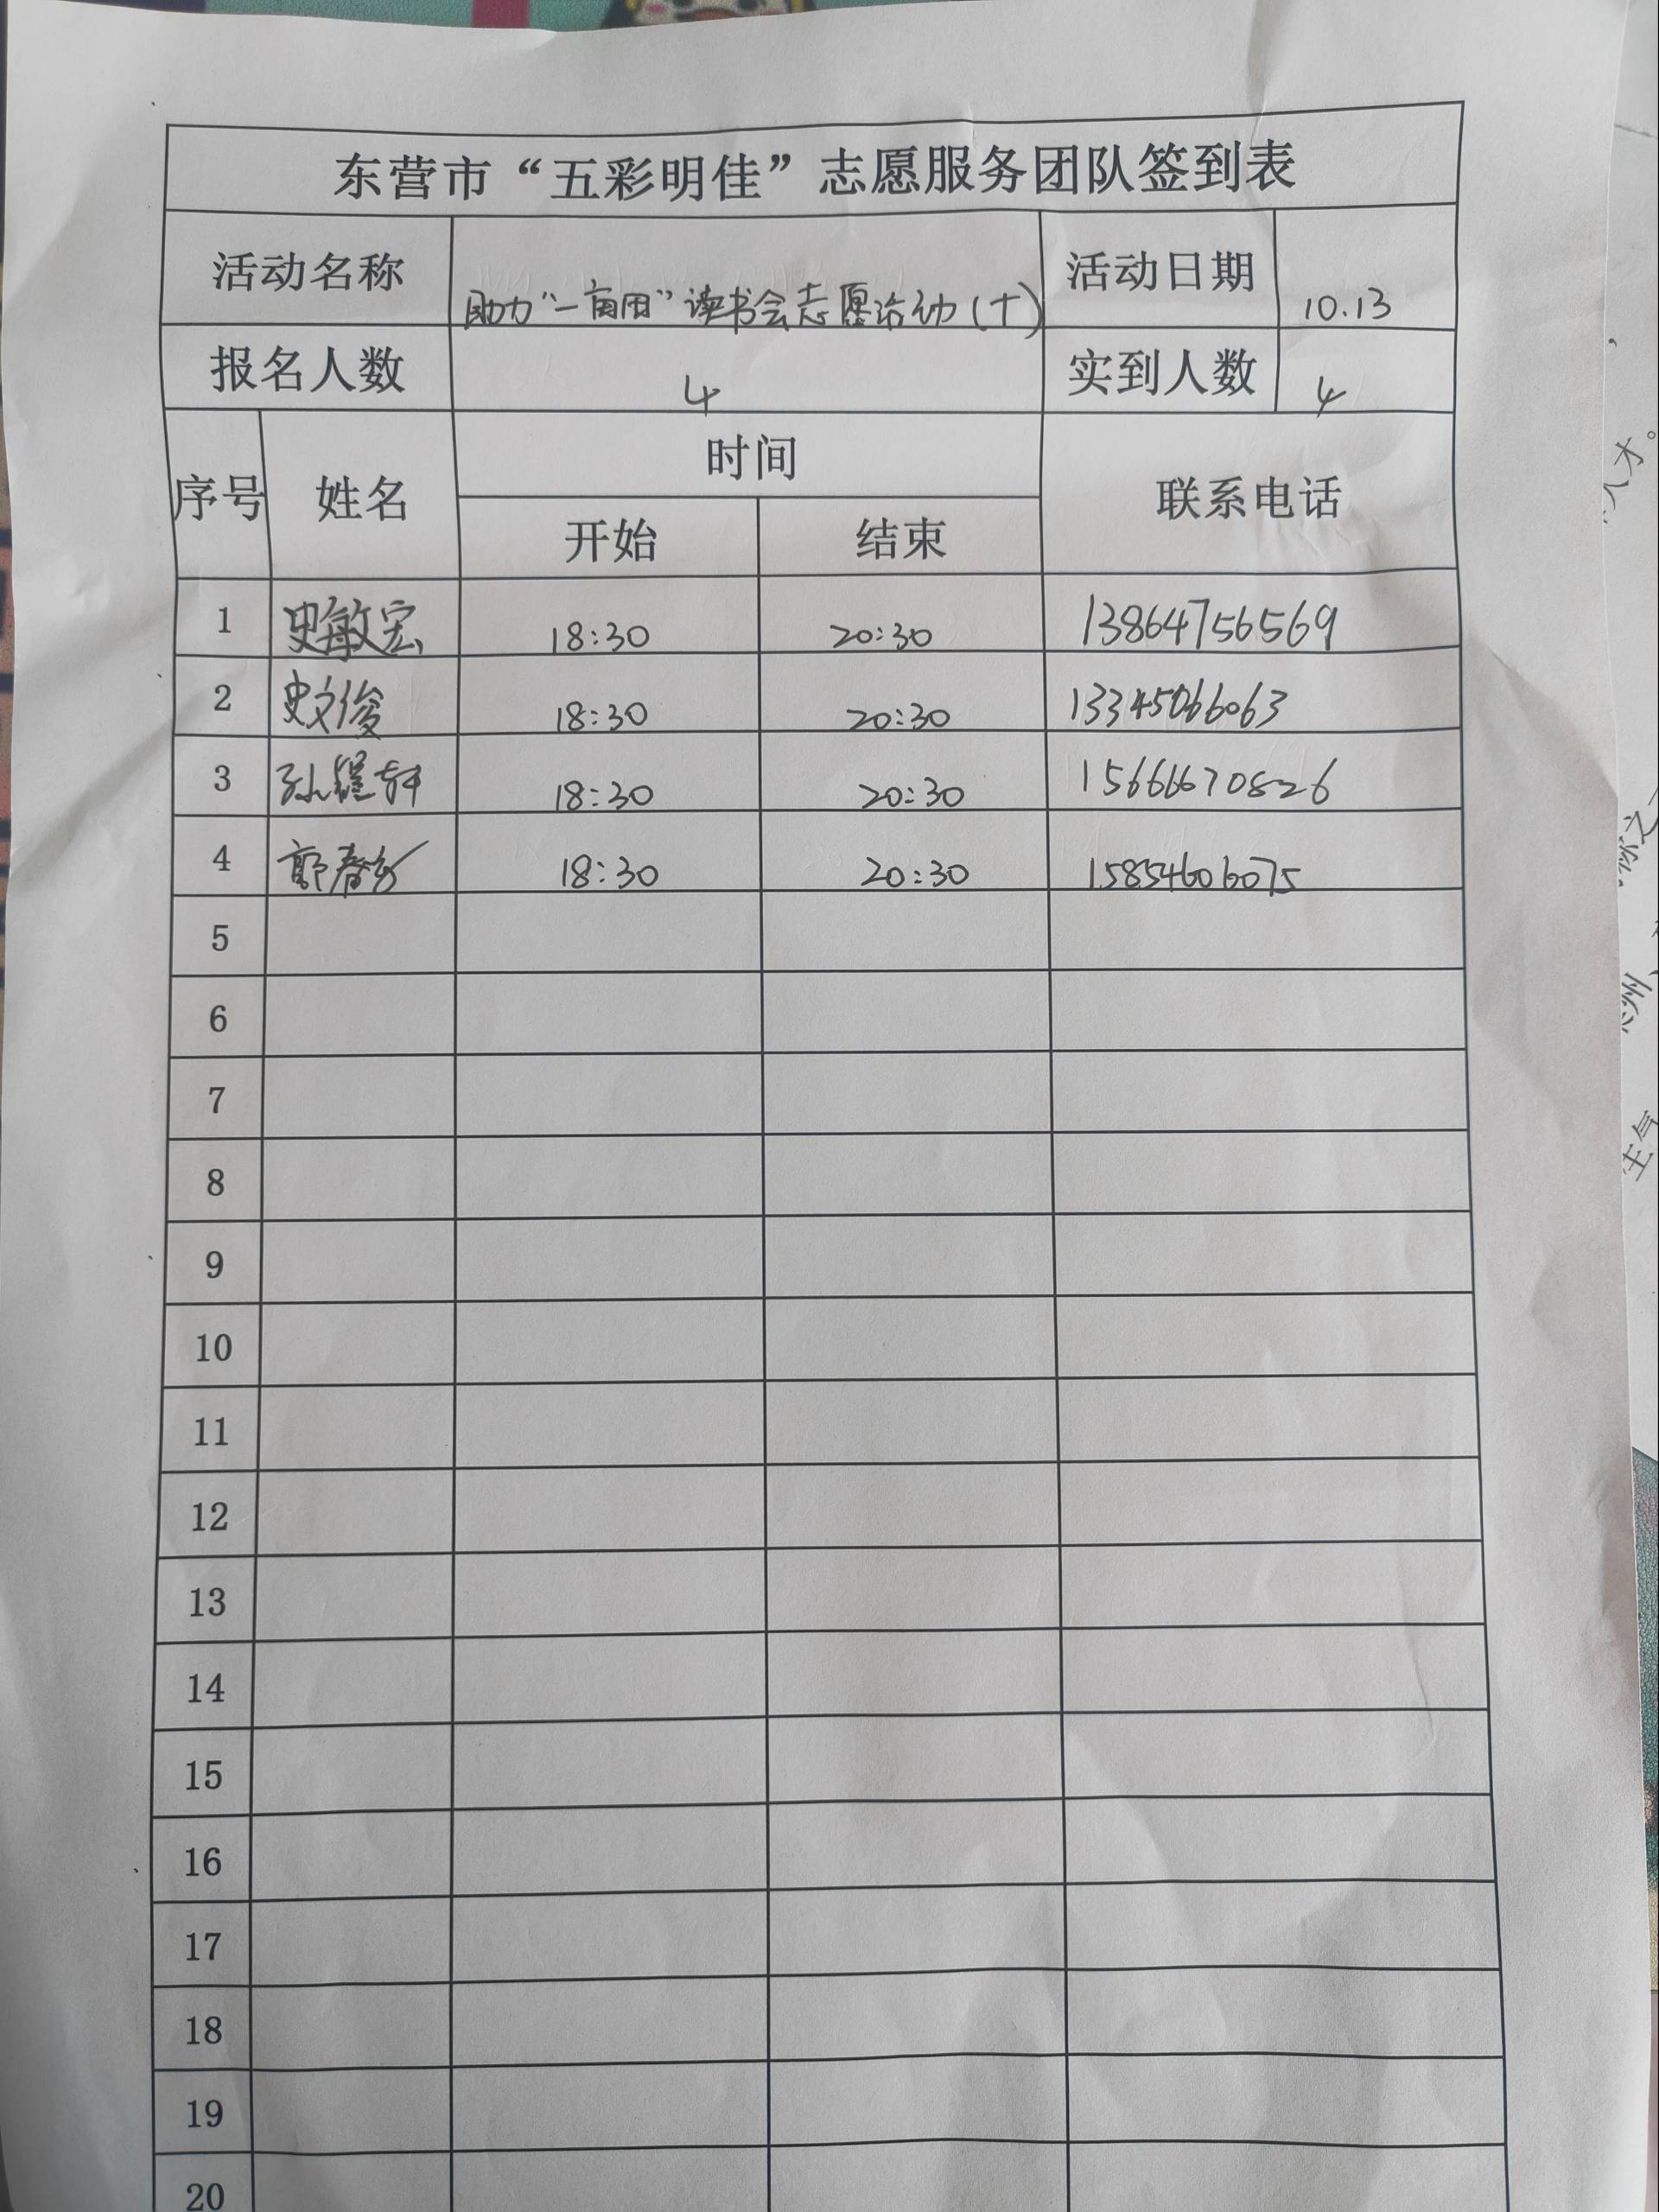 东营市“五彩明佳”志愿服务团队签到表
活动名称 助力“一亩田”读书会志愿活动(十) 活动日期 10.13
报名人数 4 实到人数 4
序号 姓名 时间 联系电话
开始 结束
1 史敏宏 18:30 20:30 13864756569
2 史文俊 18:30 20:30 13345066063
3 孙 轩 18:30 20:30 15666670826
4 郭春 18:30 20:30 15854606075
5
6
7
8
9
10
11
12
13
14
15
16
17
18
19
20